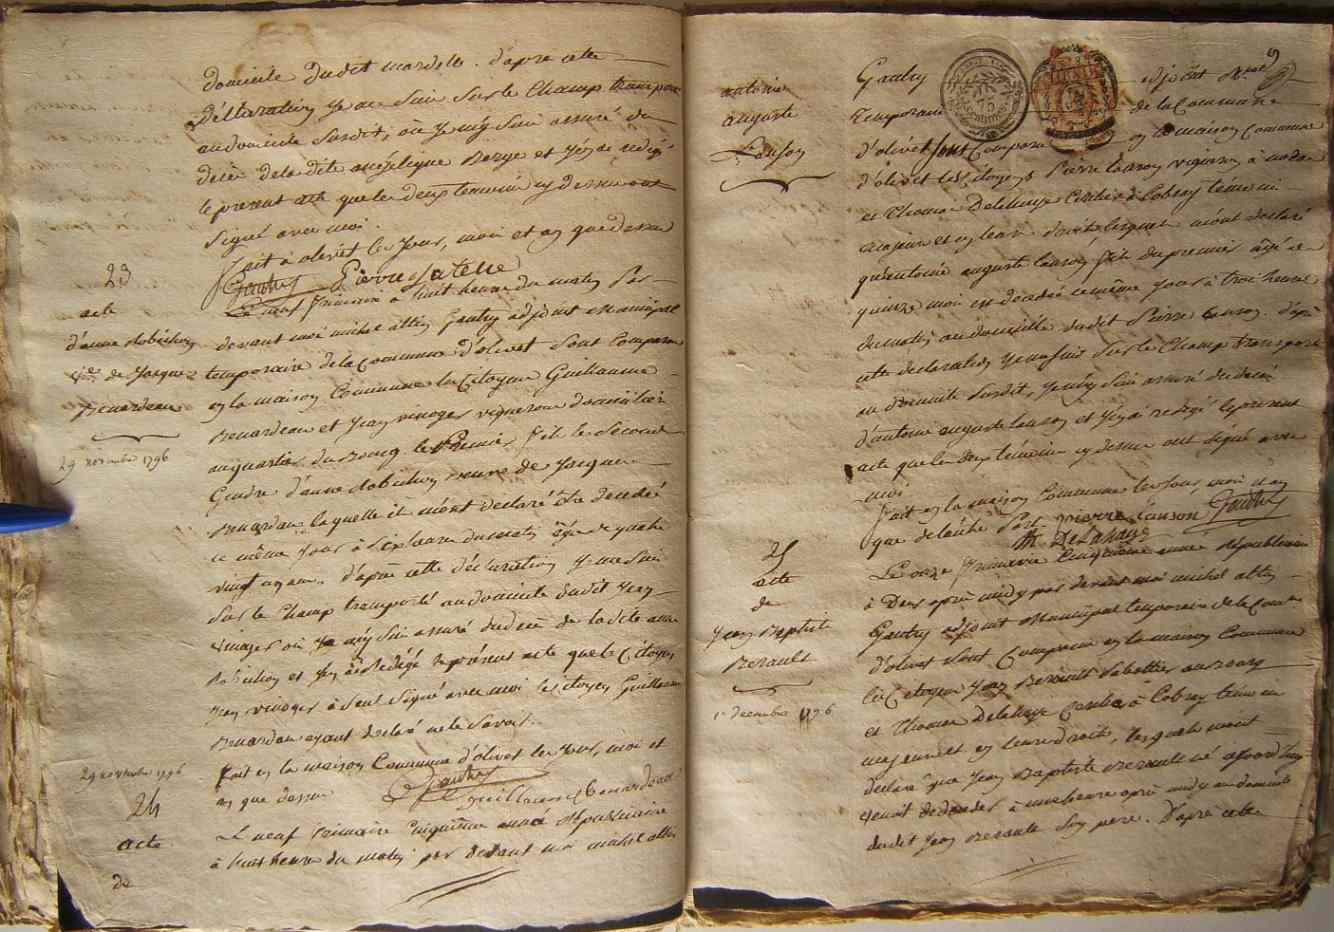 domicile dudit mardelle. d'après cette
déclaration je me suis sur le champ transporté
au domicile susdit, où je m'y suis assuré du
décès de la dite angélique Berge et j'en ai rédigé
le present acte que les deux temoins cy dessus ont
signé avec moi.
fait à olivet les jour, mois et an que dessus
Gautry Pierre
23
acte
d'anne Robichon
Vve de Jacques
Benardeau
29 novembre 1796
Le neuf frimaire à huit heure du matin par
devant moi michel Gautry adjoint Municipal
temporaire de la Commune d'olivet sont Comparu
en la maison Commune les Citoyens Guillaume
Benardeau et Jean vinoges vigneron domiciliés
au quartier du Bourg le Premier fils le second
Gendre d'anne Robichon veuve de Jacques
Benardeau laquelle ils m'ont declaré être decedée
ce même jour à six heure du matin âgée de quatre
vingt un ans. d'après cette déclaration je me suis
sur le champ transporté au domicile dudit Jean
vinoges où je m'y suis assuré du decès de la dite anne
Robichon et j'en ai redigé le présent acte que le Citoyen
Jean vinoges à seul signé avec moi le citoyen Guillaume
Benardeau ayant declaré ne le savoir.
fait en la maison Commune d'olivet les jour, mois et
an que dessus
Gautry
guillaume Benardeau
29 novembre 1796
24
acte
de
Le neuf frimaire Cinquième année Republicaine
à huit heure du matin par devant moi michel
antoine
auguste
Lanson
Gautry adjoint
temporaire de la Commune
d'olivet sont Comparu en la maison Commune
d'olivet les Citoyens Pierre Lanson vigneron à
et Thomas Delahaye à Cobray témoins
majeur et en leur droits, lesquels m'ont declaré
qu'antoine auguste Lanson fils du premier âgé de
quinze mois est decedé ce même jour à trois heure
du matin au domicille dudit Pierre Lanson. d'après
cette declaration je me suis sur le Champ transporté
au domicile susdit, je m'y suis assuré du decès
d'antoine auguste Lanson et j'en ai redigé le present
acte que les deux témoins cy dessus ont signé avec
moi
fait en la maison Commune les jour, mois et an
que de l'autre Part. pierre Lanson Gautry
th Delahaye
25
acte
de
Jean Baptiste
Berault
1er decembre 1796
Le onze frimaire Cinquième année républicaine
à Deux après midy par devant moi michel
Gautry adjoint Municipal temporaire de la Commune
d'olivet sont Comparu en la maison Commune
les Citoyens Jean Berault Sabottier au Bourg
et Thomas Delahaye à Cobray témoin
majeur et en leur droits, lesquels m'ont
declaré que Jean Baptiste Berault né
venoit de deceder à une heure après midy au domicile
dudit Jean Berault son pere. D'après cette